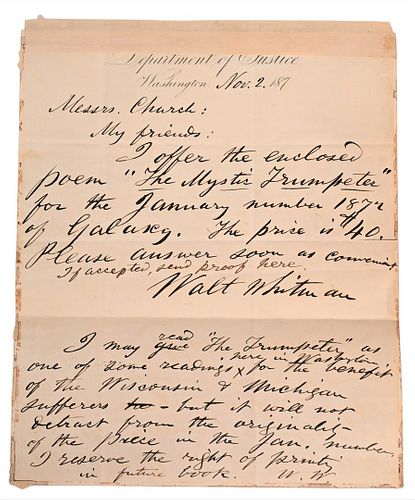 Department of Justice
Washington Nov. 2. 187
Messrs. Church:
My friends:
I offer the enclosed
poem "The Mystic Trumpeter"
for the January number 1872
of Galaxy. The price is $40.
Please answer soon as convenient
If accepted, send proof here.
Walt Whitman
I may read "The Trumpeter" as
one of some readings here in Washington for the benefit
of the Wisconsin & Michigan
sufferers - but it will not
detract from the originality
of the piece in the Jan. number
I reserve the right of printing
in future book. W. W